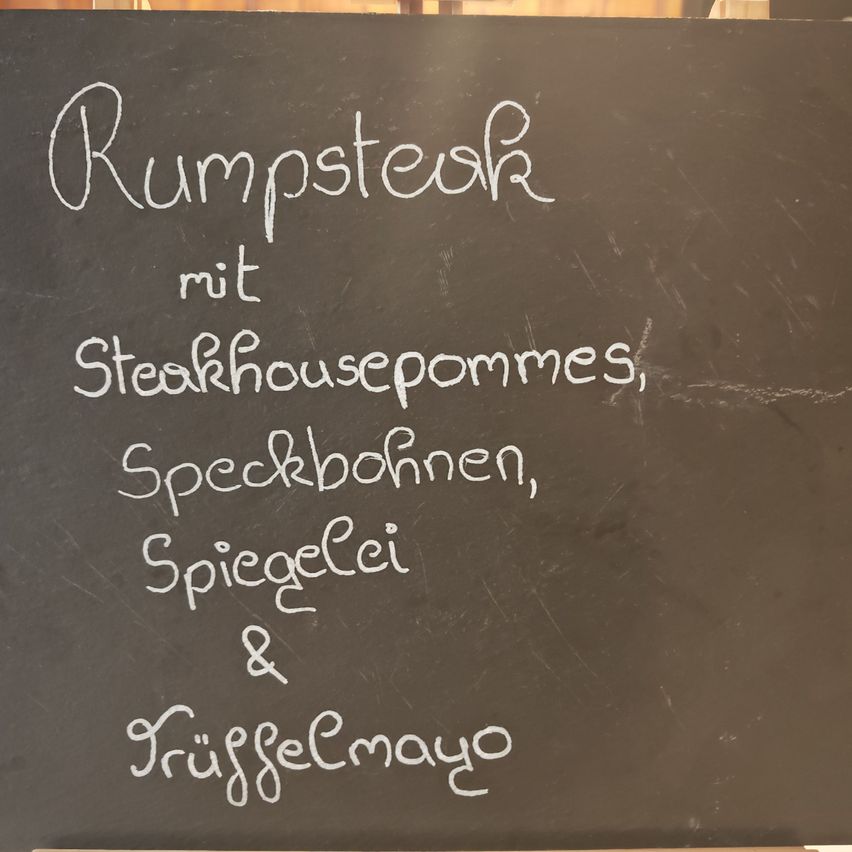 Rumpsteak
mit
Steakhousepommes,
Speckbohnen,
Spiegelei
&
Trüffelmayo